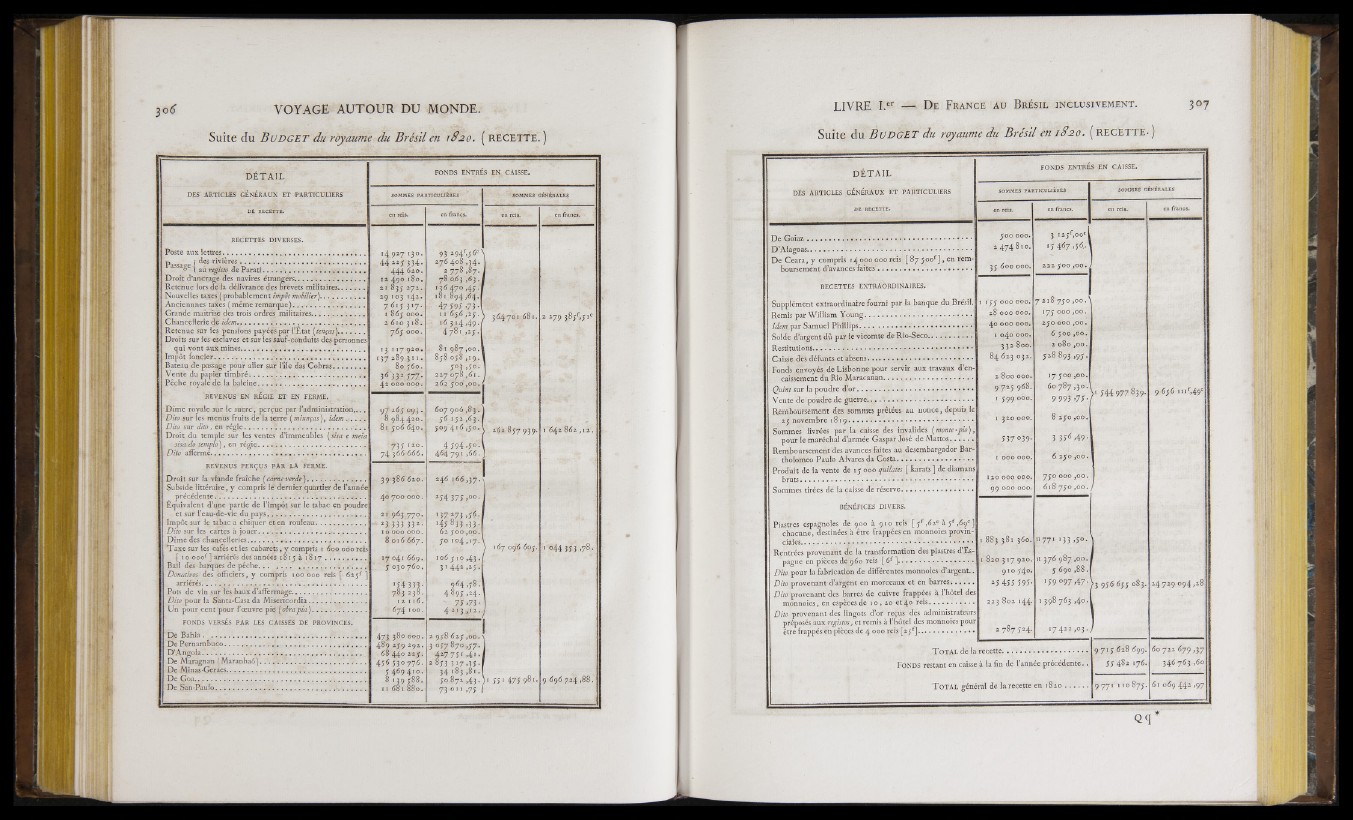 306 VOYAGE AUTOUR DU MONDE.
Suite du BUDGET du royaume du Brésil en 1820. (RECETTE.)
DÉTAIL
DES ARTICLES GÉNÉRAUX ET PARTICULIERS
DE RECETTE.
FONDS ENTRÉS EN CAISSE.
SOMMES PARTICULIÈRES SOMMES GÉNÉRALES
en reis. en francs. en reis. en francs.
RECETTES DIVERSES.
Poste aux lettres 14 927 130. 93 294f,56c
Passage des rivières 44 225 334. 276 408 ,34.
au region de Parati 444 620. 2 778 ,87.
Droit d'ancrage des navires étrangers 12 490 180. 78 063 ,63.
Retenue lors de la délivrance des brevets militaires 21 835 272. 136 470 ,45.
Nouvelles taxes (probablement impôt mobilier) 29 103 142. 181 894 ,64.
Anciennes taxes (même remarque) 7 615 317. 47 595 ,73.
Grande maîtrise des trois ordres militaires 1 865 000. 11 656 ,25.
Chancellerie de idem 2 610 318. 16 314 ,49.
Retenue sur les pensions payées par l'État (tenças) 765 000. 4 781 ,25.
Droits sur les esclaves et sur les sauf-conduits des personnes
qui vont aux mines 13 117 920. 81 987 ,00.
Impôt foncier 137 289 311. 858 058 ,19.
Bateau de passage pour aller sur l'île das Cobras 80 560. 503 ,50.
Vente du papier timbré 36 332 577. 227 078 ,61.
Pêche royale de la baleine 42 000 000. 262 500 ,00.
364 701 681. 2 279 385f,51c
REVENUS EN RÉGIE ET EN FERME.
Dîme royale sur le sucre, perçue par l'administration 97 265 093. 607 906 ,83.
Dito sur les menus fruits de la terre (miunças), idem 8 984 420. 56 152 ,63.
Dito sur dito, en régle 81 506 640. 509 416 ,50.
Droit du temple sur les ventes d'immeubles (siza e meia
siza do templo), en régie 735 120. 4 594 ,50.
Dito affermé 74 366 666. 464 791 ,66.
262 857 939. 1 642 862 ,12.
REVENUS PERÇUS PAR LA FERME.
Droit sur la viande fraîche (carne verde) 39 386 620. 246 166 ,37.
Subside littéraire, y compris le dernier quartier de l'année
précédente 40 700 000. 254 375 ,00.
Équivalent d'une partie de l'impôt sur le tabac en poudre
et sur l'eau-de-vie du pays 21 963 770. 137 273 ,56.
Impôt sur le tabac à chiquer et en rouleau 23 333 332. 145 833 ,33.
Dito sur les cartes à jouer 10 000 000. 62 500 ,00.
Dîme des chancelleries 8 016 667. 50 104 ,17.
Taxe sur les cafés et les cabarets, y compris 1 600 000 reis
[10 000f] arriérés des années 1815 à 1817 17 041 669. 106 510 ,43.
Bail des barques de pêche 5 030 760. 31 442 ,25.
Donatives des officiers, y compris 100 000 reis [625f]
arriérés 154 333. 964 ,58.
Pots de vin sur les baux d'affermage 783 238. 4 895 ,24.
Dito pour la Santa-Casa da Misericordia 12 116. 75 ,73.
Un pour cent pour l'œuvre pie (obra pia) 674 100. 4 213 ,12.
167 096 605. 1 044 353 ,78.
FONDS VERSÉS PAR LES CAISSES DE PROVINCES.
De Bahia 473 380 000. 2 958 625 ,00.
De Pernambuco 489 259 292. 3 057 870 ,57.
D'Angola 68 440 225. 427 751 ,41.
De Maragnan [Maranhaõ] 456 530 776. 2 853 317 ,35.
De Minas-Geraes 5 469 410. 34 183 ,81.
De Goa 8 139 588. 50 872 ,43.
De San-Paulo 11 681 880. 73 011 ,75
1 551 475 981. 9 696 724 ,88.
LIVRE I.er — DE FRANCE AU BRÉSIL INCLUSIVEMENT. 307
Suite du BUDGET du royaume du Brésil en 1820. (RECETTE.)
DÉTAIL
DES ARTICLES GÉNÉRAUX ET PARTICULIERS
DE RECETTE.
FONDS ENTRÉS EN CAISSE.
SOMMES PARTICULIÈRES SOMMES GÉNÉRALES
en reis. en francs. en reis. en francs.
De Goiaz 500 000. 3 125f,00c
D'Alagoas 2 474 810. 15 467 ,56.
De Ceara, y compris 14 000 000 reis [87 500f], en rem-
boursement d'avances faites 35 600 000. 222 500 ,00.
RECETTES EXTRAORDINAIRES.
Supplément extraordinaire fourni par la banque du Brésil. 1 155 000 000. 7 218 750 ,00.
Remis par William Young 28 000 000. 175 000 ,00.
Idem par Samuel Phillips 40 000 000. 250 000 ,00.
Solde d'argent dû par le vicomte de Rio-Seco 1 040 000. 6 500 ,00.
Restitutions 332 800. 2 080 ,00.
Caisse des défunts et absens 84 623 032. 528 893 ,95.
Fonds envoyés de Lisbonne pour servir aux travaux d'en-
caissement du Rio Maracanan 2 800 000. 17 500 ,00.
Quint sur la poudre d'or 9 725 968. 60 787 ,30.
Vente de poudre de guerre 1 599 000. 9 993 ,75.
Remboursement des sommes prêtées au nonce, depuis le
25 novembre 1819 1 320 000. 8 250 ,00.
Sommes livrées par la caisse des invalides (monte-pio),
pour le maréchal d'armée Gaspar José de Mattos 537 039. 3 356 ,49.
Remboursement des avances faites au desembargador Bar-
tholomeo Paulo Alvares da Costa 1 000 000. 6 250 ,00.
Produit de la vente de 15 000 quilates [karats] de diamans
bruts 120 000 000. 750 000 ,00.
Sommes tirées de la caisse de réserve 99 000 000. 618 750 ,00.
1 544 977 839. 9 656 111f,49c
BÉNÉFICES DIVERS.
Piastres espagnoles de 900 à 910 reis [5f,62c à 5f,69c]
chacune, destinées à être frappées en monnoies provin-
ciales 1 883 381 360. 11 771 133 ,50.
Rentrées provenant de la transformation des piastres d'Es-
pagne en pièces de 960 reis [6f] 1 820 317 920. 11 376 987 ,00.
Dito pour la fabrication de différentes monnoies d'argent 910 540. 5 690 ,88.
Dito provenant d'argent en morceaux et en barres 25 455 595. 159 097 ,47.
Dito provenant des barres de cuivre frappées à l'hôtel des
monnoies, en espèces de 10, 20 et 40 reis 223 802 144. 1 398 763 ,40.
Dito provenant des lingots d'or reçus des administrateurs
préposés aux regions, et remis à l'hôtel des monnoies pour
être frappés en pièces de 4 000 reis [25f] 2 787 524. 17 422 ,03.
3 956 655 083. 24 729 094 ,28
TOTAL de la recette 9 715 628 699. 60 722 679 ,37
FONDS restant en caisse à la fin de l'année précédente 55 482 176. 346 763 ,60
TOTAL général de la recette en 1820 9 771 110 875. 61 069 442 ,97
Qq*